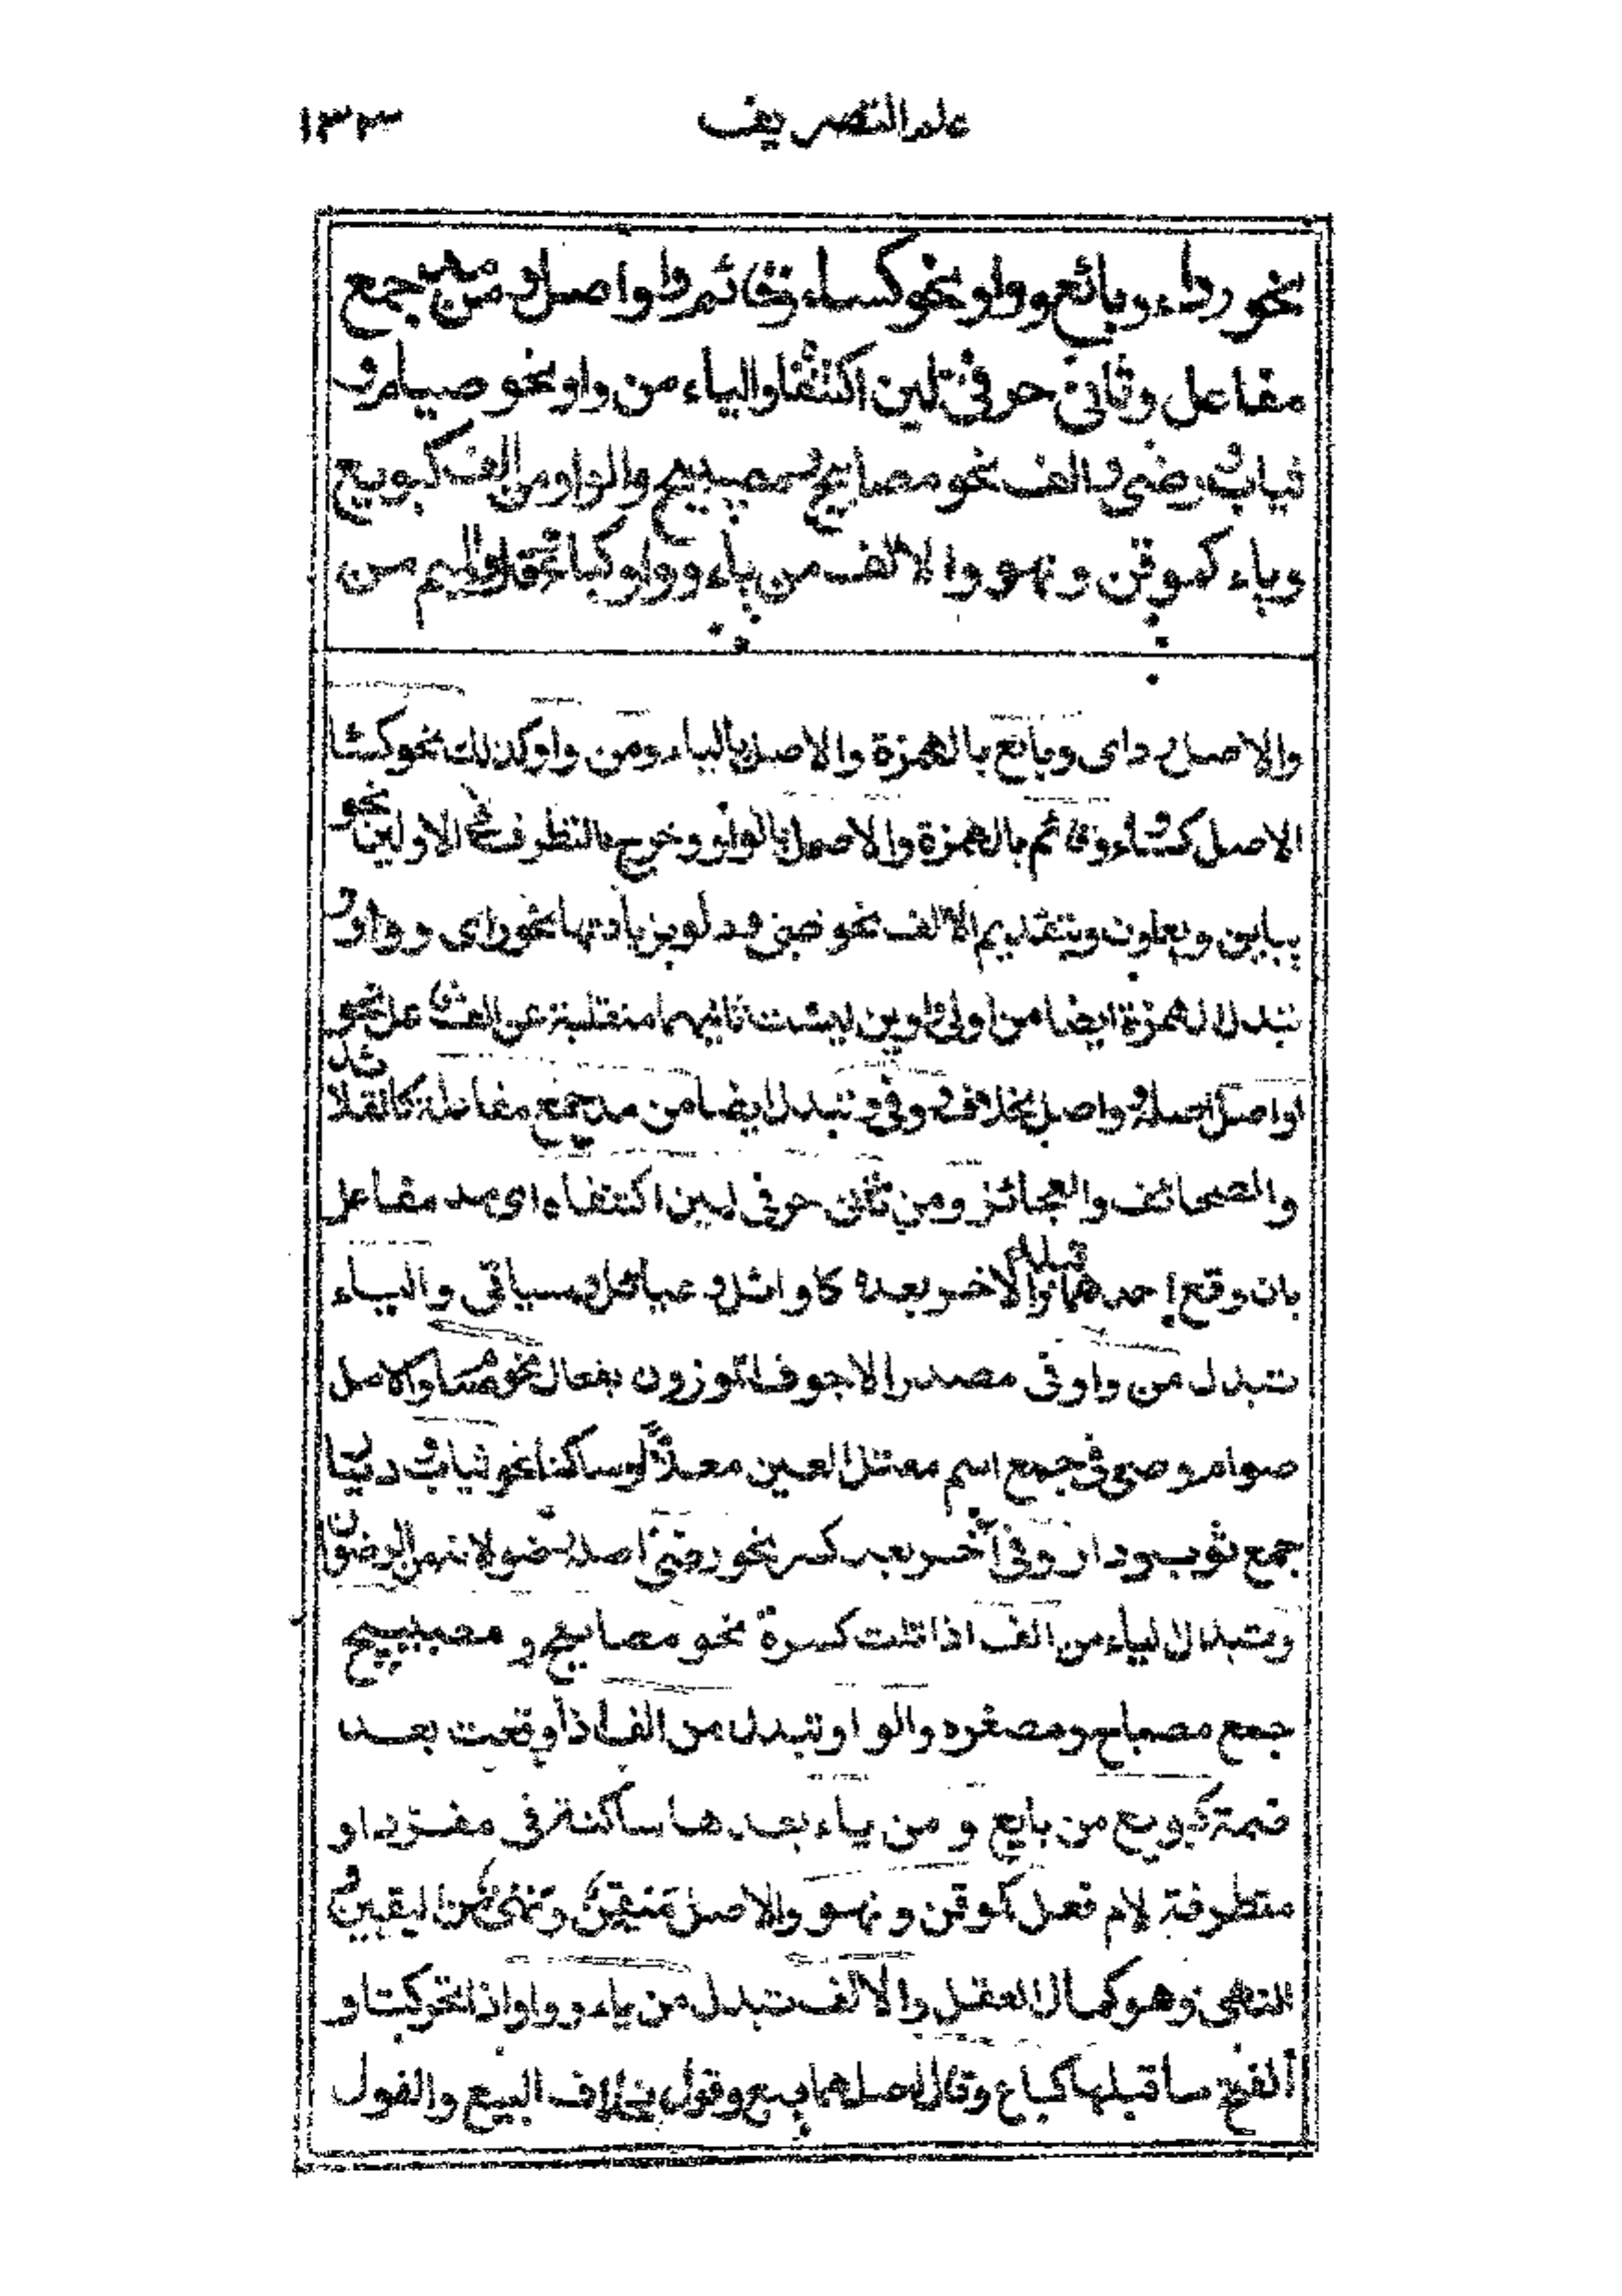 علم التصريف ١٣٣
نحو رداء وبائع وواو نحو كساء وقائم واواصل ومن مد جمع
مفاعل وثاني حرفي لين اكتنفا والياء من واو نحو صيام و
ثياب ورضى والف نحو مصابيح ومصيبيح والواو من الف كبويع
وياء كموقن ونهو والالف من ياء وواو كباع وقال والميم من
والاصل رداى وبايع بالهمزة والاصل بالياء ومن واو كذلك نحو كساء
الاصل كساو وقائم بالهمزة والاصل بالواو وخرج بالتطرف في الاولين نحو
تباين وتعاون وبتقديم الالف نحو ظبى ودلو وبزيادتها نحو راى وواو و
تبدل الهمزة ايضا من اولى واوين ليست ثانيهما منقلبة عن الف فاعل نحو
اواصل اصله وواصل بخلاف ووفى وتبدل ايضا من مد جمع مفاعل كالقلائد
والصحائف والعجائز ومن ثانى حرفى لين اكتنفاه اى مد مفاعل
بان وقع احدهما قبله والاخر بعده كاوائل وعيائل وسياقى والياء
تبدل من واو فى مصدر الاجوف الموزون بفعال نحو صيام والاصل
صوام وهى فى جمع اسم معتل العين معلا او ساكنا نحو ثياب وديار
جمع ثوب ودار وفى آخر بعد كسر نحو رضى اصله رضو لانه من الرضوان
وتبدل الياء من الف اذا تلت كسرة نحو مصابيح ومصيبيح
جمع مصباح ومصغره والواو تبدل من الف اذا وقعت بعد
ضمة كبويع من بايع ومن ياء بعدها ساكنة فى مفرد او
متطرفة لام فعل كموقن ونهو والاصل ميقن ونهى من اليقين و
النهى وهو كمال العقل والالف تبدل من ياء وواو اذا تحركتا و
انفتح ما قبلها كباع وقال اصلهما بيع وقول بخلاف البيع والقول